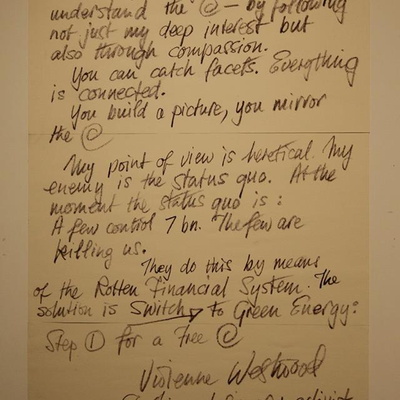 understand the @ — by following
not just my deep interest but
also through compassion.
You can catch facets. Everything
is connected.
You build a picture, you mirror
the @
My point of view is heretical. My
enemy is the status quo. At the
moment the status quo is :
A few control 7 bn. The few are
killing us.
They do this by means
of the Rotten Financial System. The
solution is Switch → to Green Energy:
Step ① for a Free @
Vivienne Westwood
activist